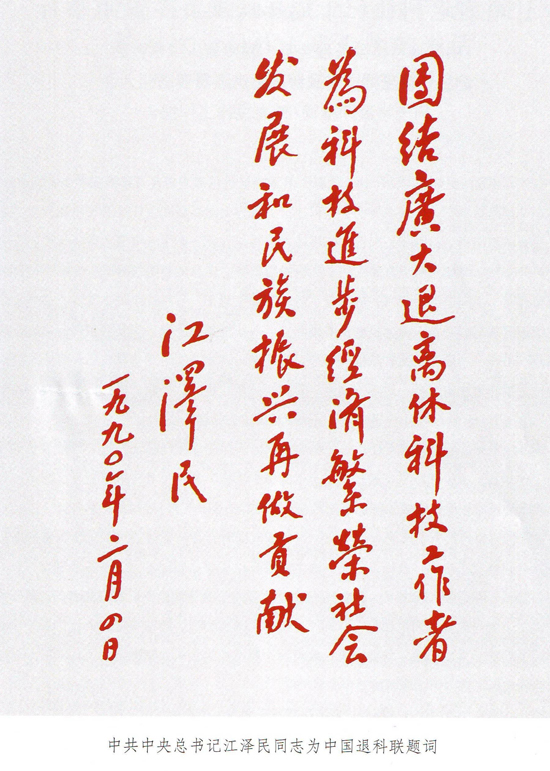 团结廣大退离休科技工作者
為科技進步經済繁榮社会
发展和民族振兴再做贡献
江澤民
一九九〇年二月四日
中共中央总书记江泽民同志为中国退科联题词